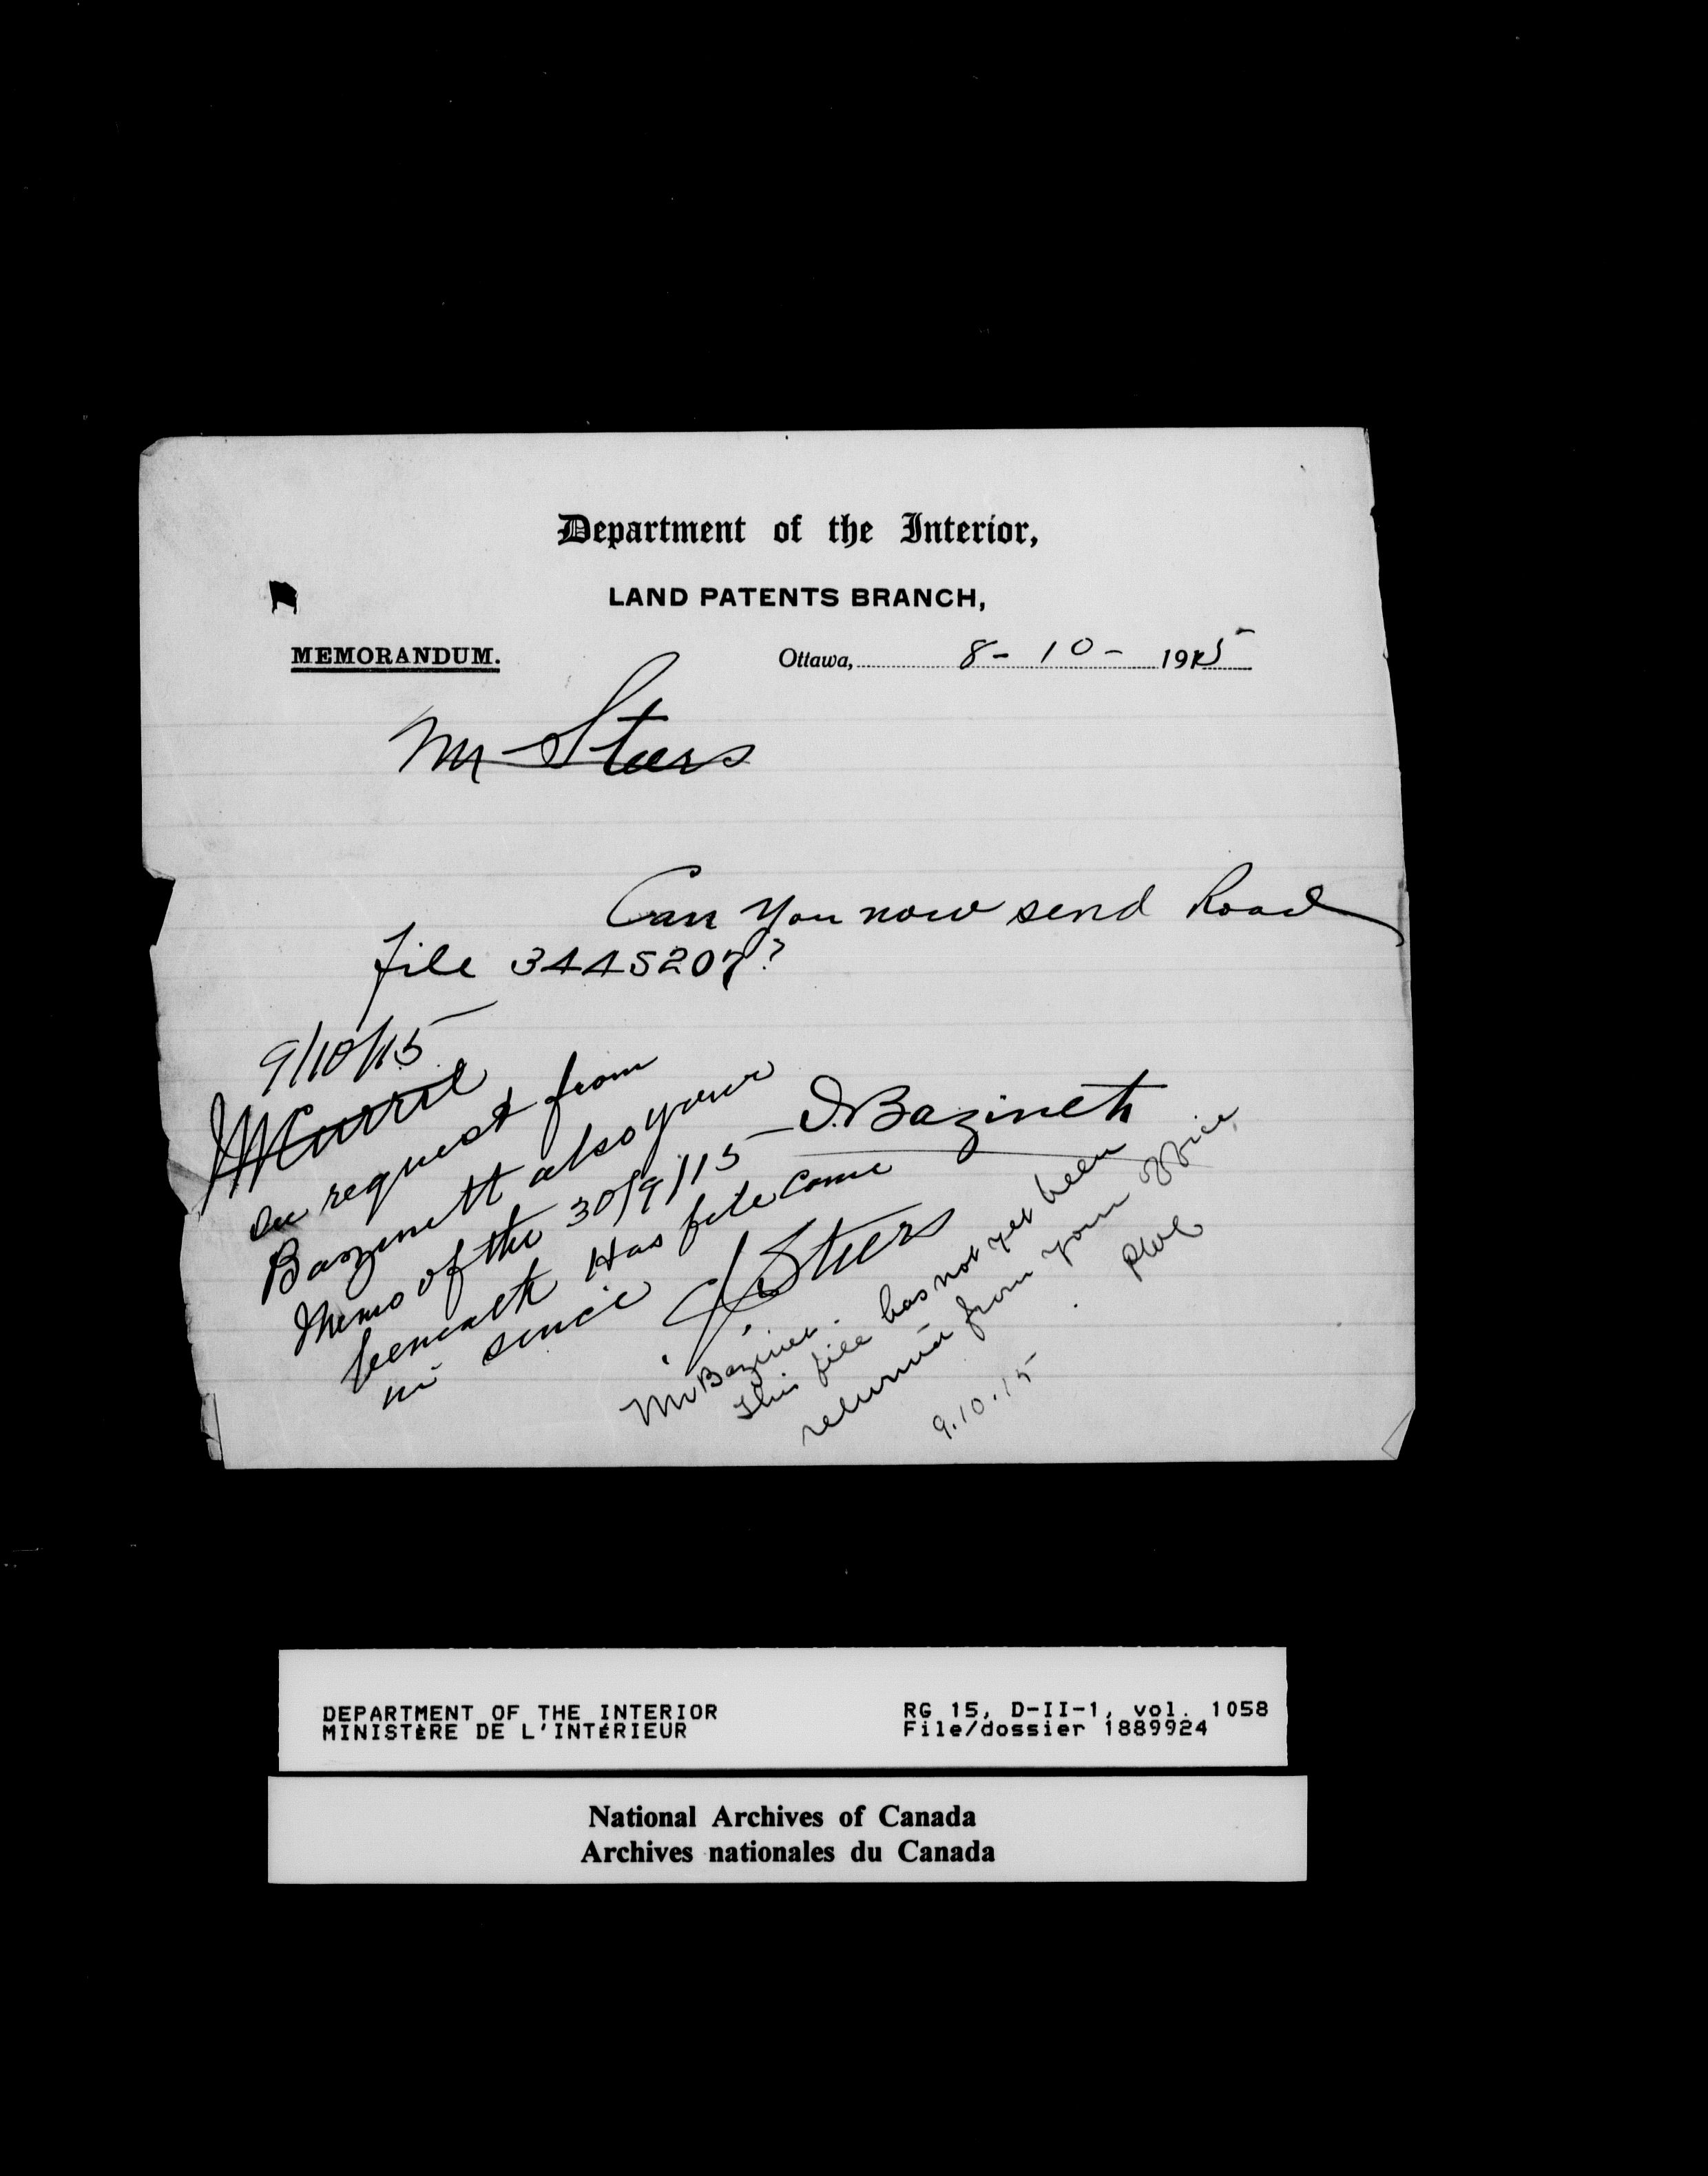 Department of the Interior,
LAND PATENTS BRANCH,
MEMORANDUM.
Ottawa, 8-10-1915
Mr Steers
Can you now send Road
file 3445207?
D. Bazinet
9/10/15
see request from
Bazinett also your
Memo of the 30/9/15
beneath Has file come
in since
J. Steers
Mr Bazinet.
This file has not yet been
returned from your office
9.10.15
DEPARTMENT OF THE INTERIOR
MINISTÈRE DE L'INTÉRIEUR
RG 15, D-II-1, vol. 1058
File/dossier 1889924
National Archives of Canada
Archives nationales du Canada